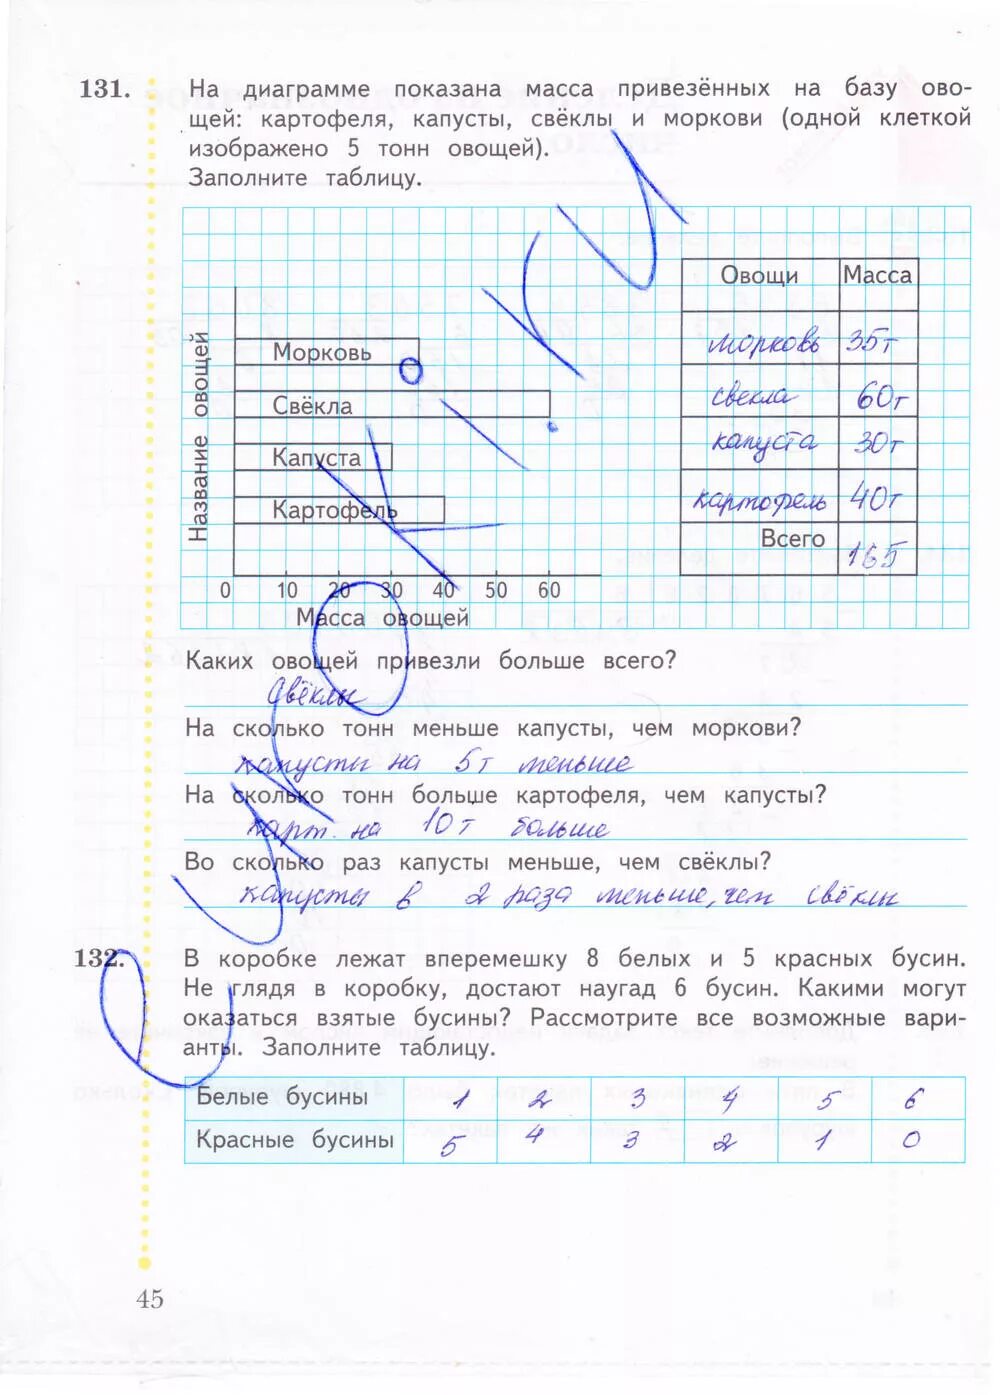 131. На диаграмме показана масса привезённых на базу ово-
щей: картофеля, капусты, свёклы и моркови (одной клеткой
изображено 5 тонн овощей).
Заполните таблицу.
Название овощей
Морковь
Свёкла
Капуста
Картофель
0 10 20 30 40 50 60
Масса овощей
Овощи Масса
морковь 35т
свекла 60т
капуста 30т
картофель 40т
Всего 165
Каких овощей привезли больше всего?
Свёклы
На сколько тонн меньше капусты, чем моркови?
капусты на 5т меньше
На сколько тонн больше картофеля, чем капусты?
карт. на 10т больше
Во сколько раз капусты меньше, чем свёклы?
капусты в 2 раза меньше, чем свёклы
132. В коробке лежат вперемешку 8 белых и 5 красных бусин.
Не глядя в коробку, достают наугад 6 бусин. Какими могут
оказаться взятые бусины? Рассмотрите все возможные вари-
анты. Заполните таблицу.
Белые бусины 1 2 3 4 5 6
Красные бусины 5 4 3 2 1 0
45